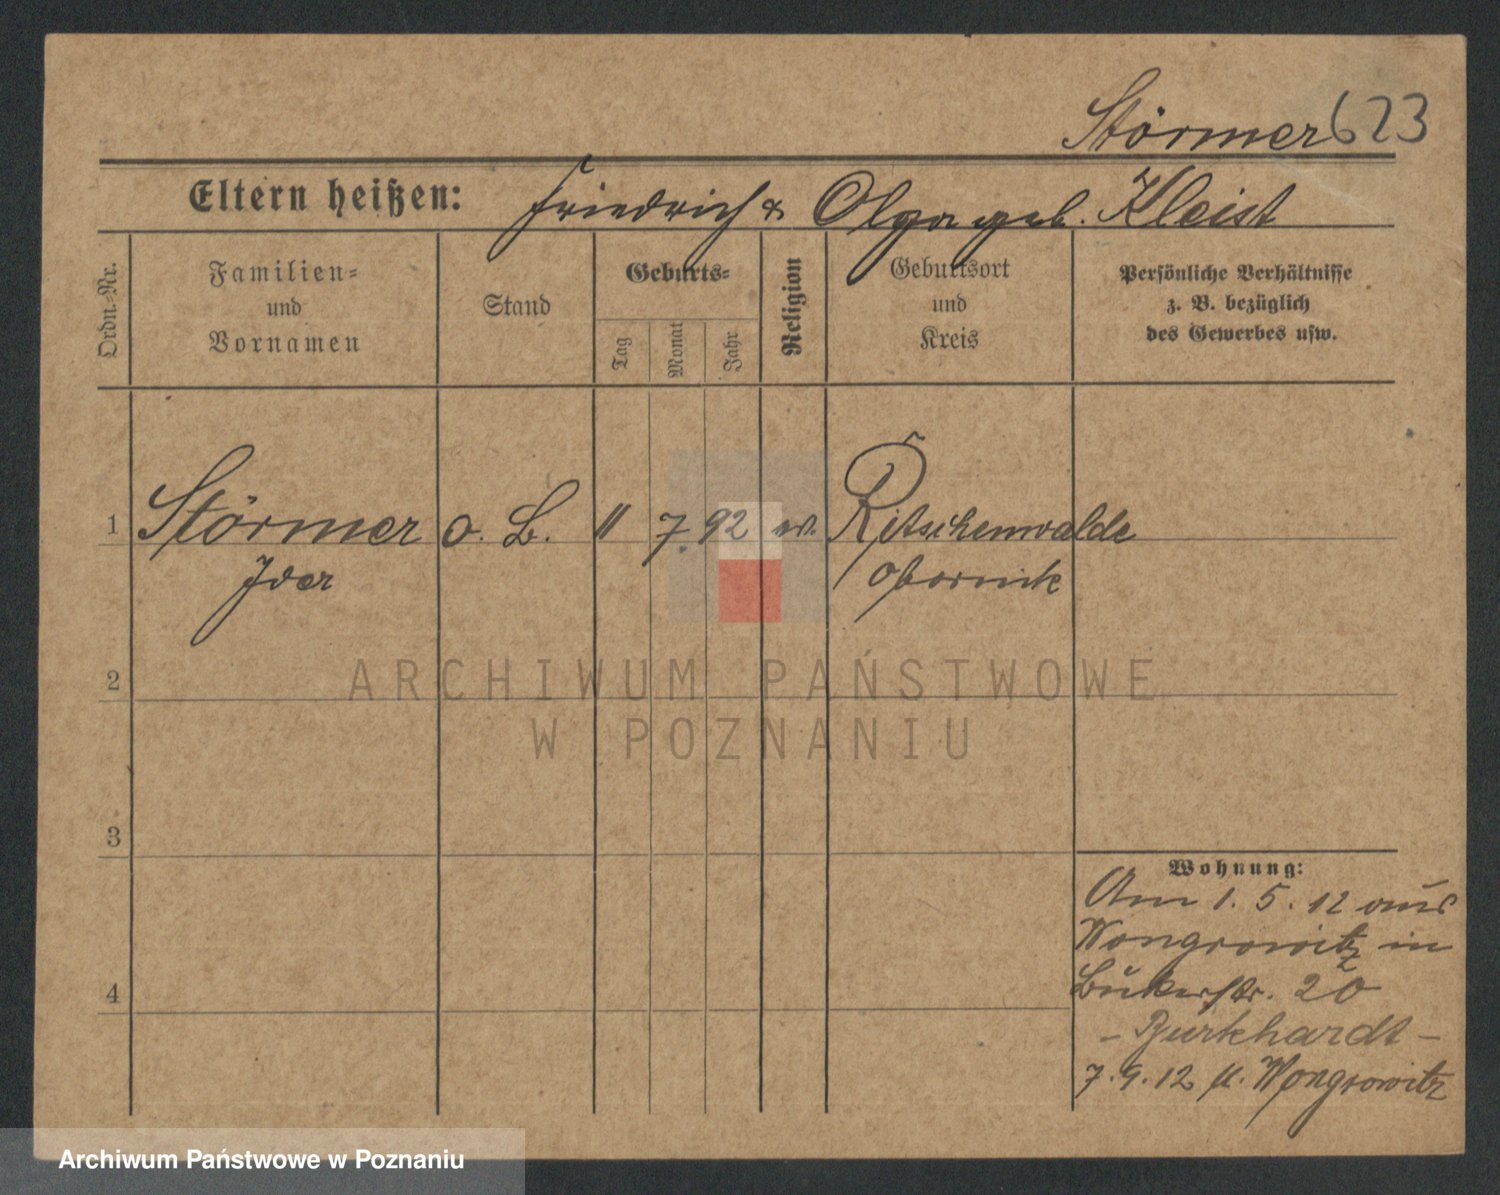 Störmer 623
Eltern heißen: Friedrich & Olga geb. Kleist
Ordn.-Nr.
Familien-
und
Vornamen
Stand
Geburts-
Tag
Monat
Jahr
Religion
Geburtsort
und
Kreis
Persönliche Verhältnisse
z. B. bezüglich
des Gewerbes usw.
1 Störmer o. B. 11 7. 92 ev. Ritschenwalde
Obornik
2
3
4
Wohnung:
Am 1. 5. 12 aus
Wongrowitz in
Bukerstr. 20
- Burkhardt -
7. 9. 12 n. Wongrowitz
ARCHIWUM PAŃSTWOWE
W POZNANIU
Archiwum Państwowe w Poznaniu